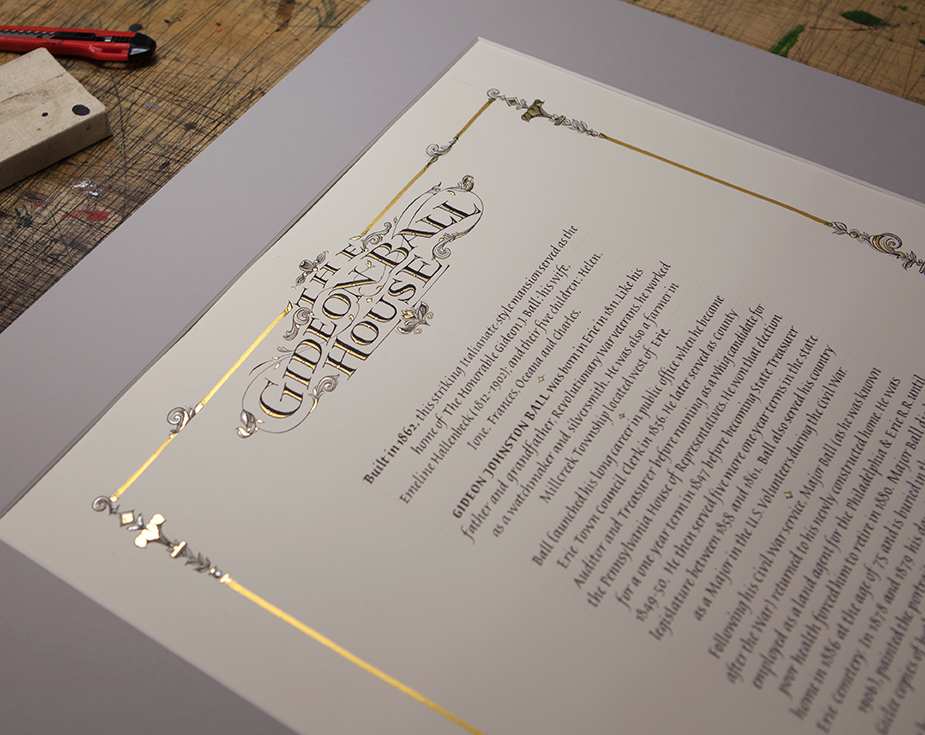 THE
GIDEON BALL
HOUSE
Built in 1862, this striking Italianate-style mansion served as the
home of The Honorable Gideon J. Ball; his wife,
Emeline Hallenbeck (1812-1902); and their five children: Helen,
Ione, Frances, Oceana and Charles.
GIDEON JOHNSTON BALL was born in Erie in 1811. Like his
father and grandfather, Revolutionary War veterans, he worked
as a watchmaker and silversmith. He was also a farmer in
Millcreek Township located west of Erie.
Ball launched his long career in public office when he became
Erie Town Council clerk in 1836. He later served as County
Auditor and Treasurer before running as a Whig candidate for
the Pennsylvania House of Representatives. He won that election
for a one year term in 1847 before becoming State Treasurer
1849-50. He then served five more one year terms in the state
legislature between 1853 and 1861. Ball also served his country
as a Major in the U.S. Volunteers during the Civil War.
Following his Civil War service, Major Ball (as he was known
after the War) returned to his newly constructed home. He was
employed as a land agent for the Philadelphia & Erie R.R. until
poor health forced him to retire in 1880. Major Ball
home in 1886 at the age of 75 and is buried in the
Erie cemetery. In 1878 and 1879 his
1906), painted the
copies of